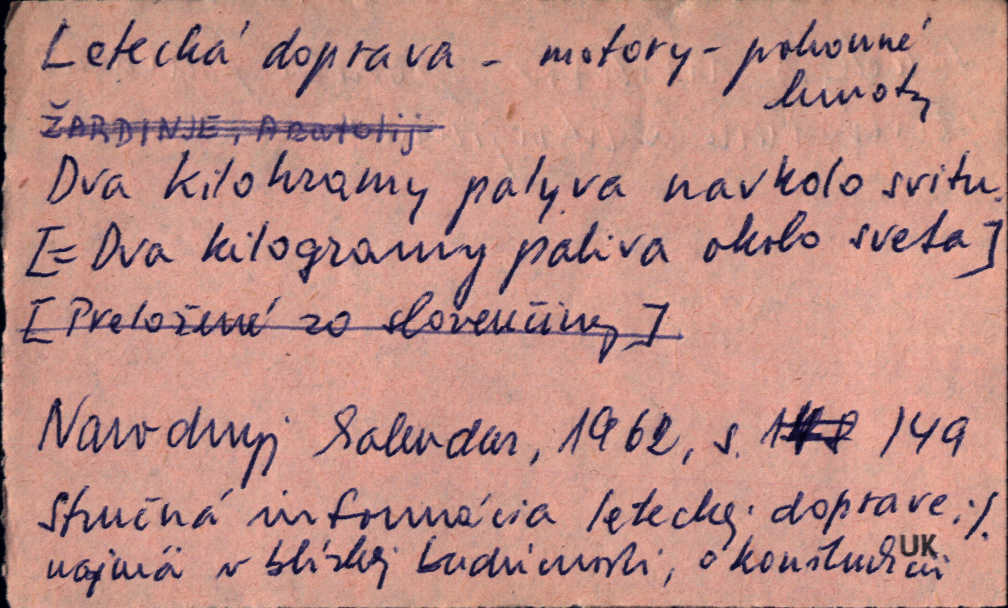 Letecká doprava - motory - pohonné
hmoty
ŽARDINJE, Anatolij
Dva kilohramy palyva navkolo svitu.
[= Dva kilogramy paliva okolo sveta]
[Preložené zo slovenčiny]
Narodnyj kalendar, 1962, s. 149
Stručná informácia leteckej doprave;/.
najmä v blízkej budúcnosti, o konštrukcii
UK